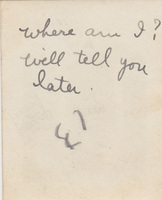 where am I?
will tell you
later.